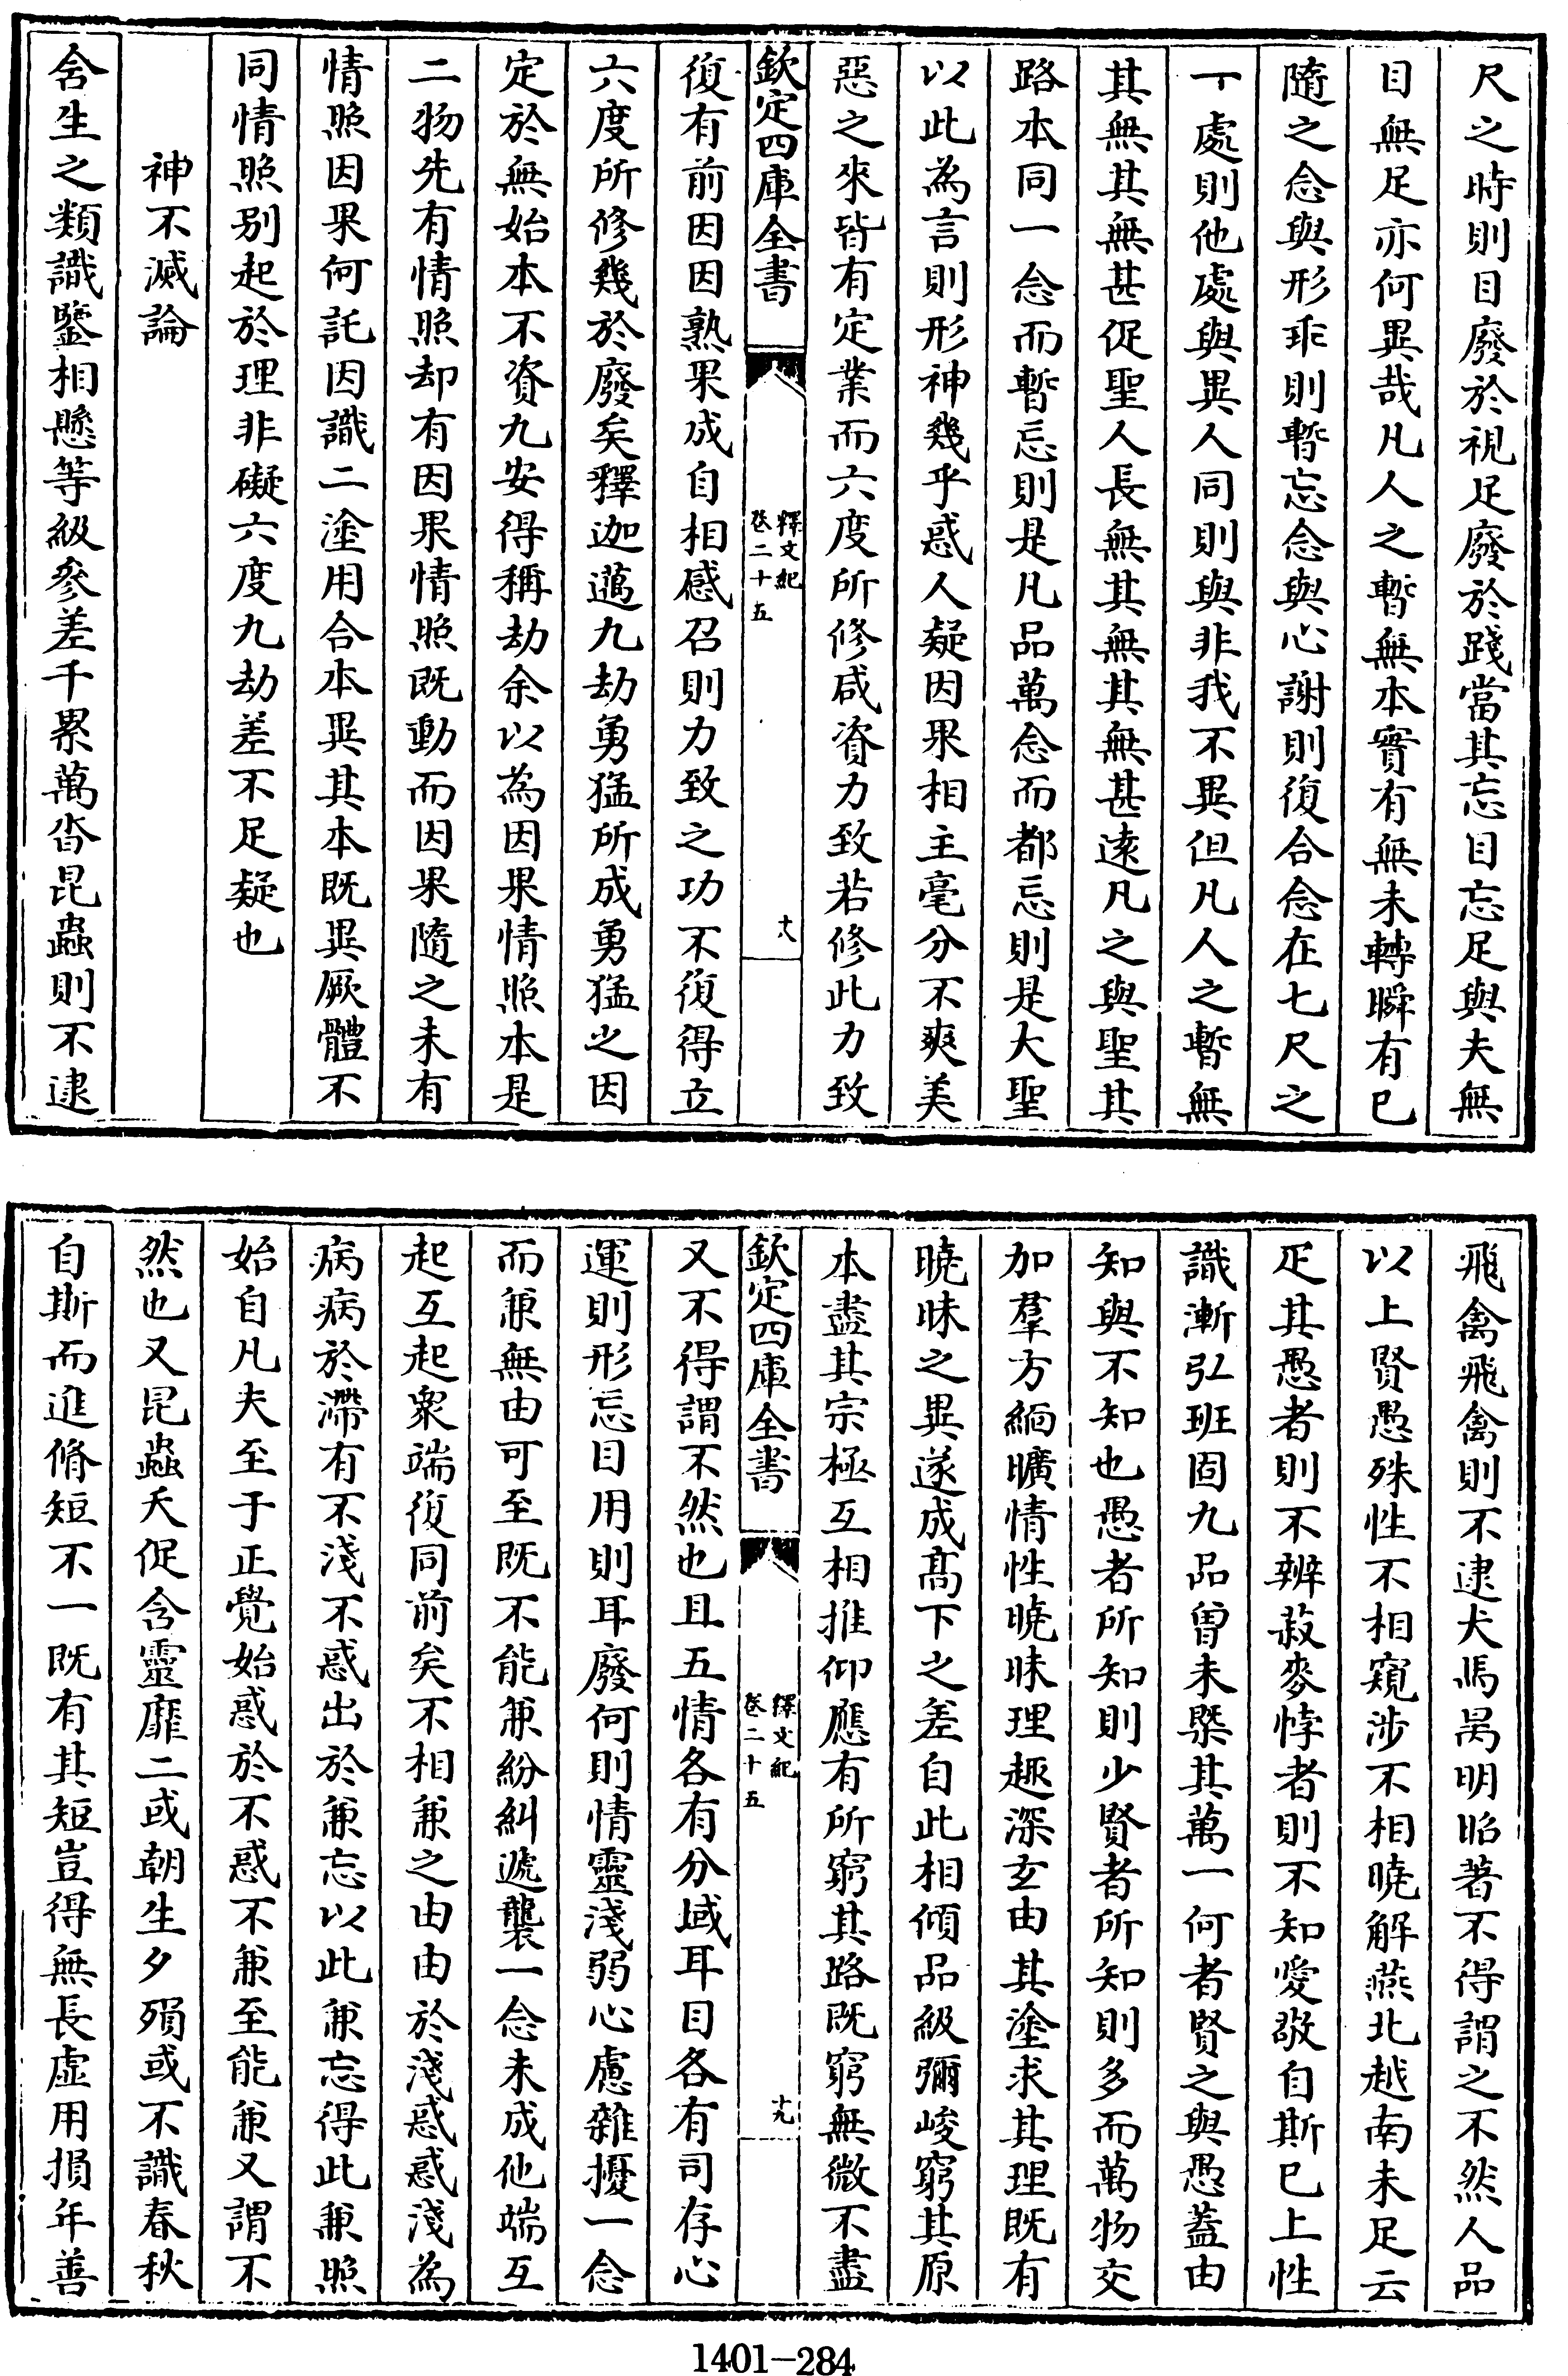 尺之時則目廢於視足廢於踐當其忘目忘足與夫無
目無足亦何異哉凡人之暫無本實有無未轉瞬有已
隨之念與形乖則暫忘念與心謝則復合念在七尺之
一處則他處與異人同則與非我不異但凡人之暫無
其無其無甚促聖人長無其無其無甚遠凡之與聖其
路本同一念而暫忘則是凡品萬念而都忘則是大聖
以此為言則形神幾乎惑人疑因果相主毫分不爽美
惡之來皆有定業而六度所修咸資力致若修此力致
欽定四庫全書
釋文紀
卷二十五
十八
復有前因因熟果成自相感召則力致之功不復得立
六度所修幾於廢矣釋迦邁九劫勇猛所成勇猛之因
定於無始本不資九安得稱劫余以為因果情照本是
二物先有情照却有因果情照既動而因果隨之未有
情照因果何託因識二塗用合本異其本既異厥體不
同情照别起於理非礙六度九劫差不足疑也
神不滅論
含生之類識鑒相懸等級參差千累萬沓昆蟲則不逮
飛禽飛禽則不逮犬馬昺明昭著不得謂之不然人品
以上賢愚殊性不相窺涉不相曉解燕北越南未足云
疋其愚者則不辨菽麥悖者則不知愛敬自斯已上性
識漸弘班固九品曾未槩其萬一何者賢之與愚蓋由
知與不知也愚者所知則少賢者所知則多而萬物交
加羣方緬曠情性曉昧理趣深玄由其塗求其理既有
曉昧之異遂成髙下之差自此相傾品級彌峻窮其原
本盡其宗極互相推仰應有所窮其路既窮無微不盡
欽定四庫全書
釋文紀
卷二十五
十九
又不得謂不然也且五情各有分域耳目各有司存心
運則形忘目用則耳廢何則情靈淺弱心慮雜擾一念
而兼無由可至既不能兼紛糾遞襲一念未成他端互
起互起衆端復同前矣不相兼之由由於淺惑惑淺為
病病於滯有不淺不惑出於兼忘以此兼忘得此兼照
始自凡夫至于正覺始惑於不惑不兼至能兼又謂不
然也又昆蟲夭促含靈靡二或朝生夕殞或不識春秋
自斯而進脩短不一既有其短豈得無長虛用損年善
1401-284